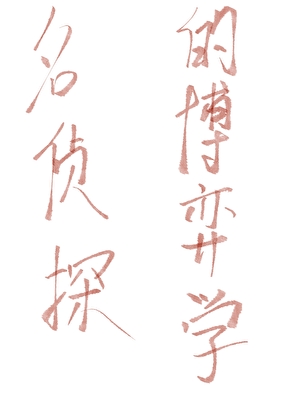 名侦探
的博弈学